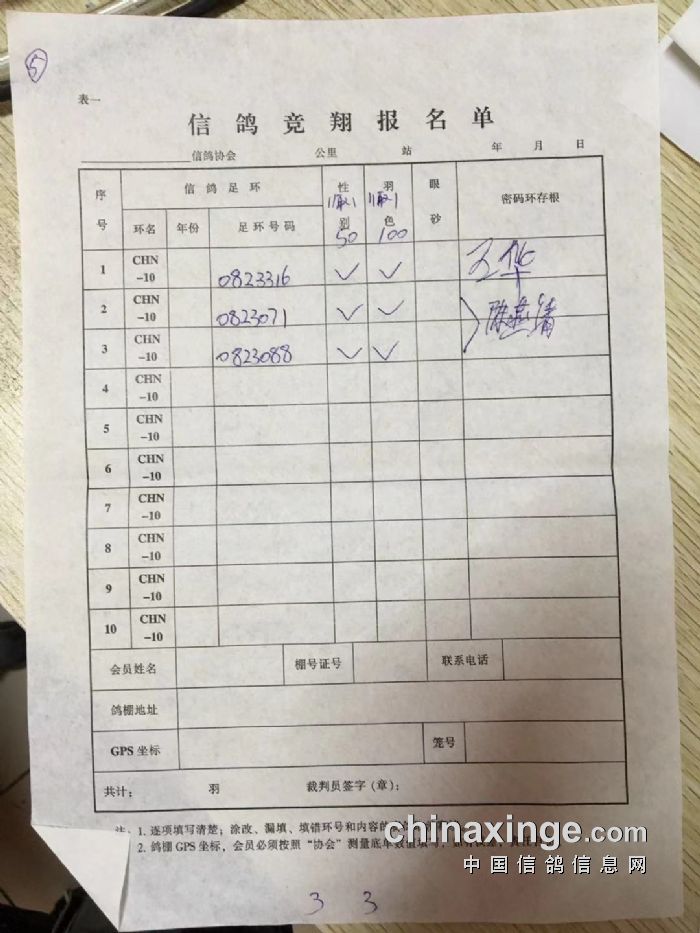 ⑤
表一
信鸽竞翔报名单
信鸽协会 公里 站 年 月 日
序号 信鸽足环 性别 羽色 眼砂 密码环存根
11取1 11取1
环名 年份 足环号码 50 100
1 CHN-10 0823316 ✓ ✓ 王华
2 CHN-10 0823071 ✓ ✓
3 CHN-10 0823088 ✓ ✓
4 CHN-10
5 CHN-10
6 CHN-10
7 CHN-10
8 CHN-10
9 CHN-10
10 CHN-10
会员姓名 棚号证号 联系电话
鸽棚地址
GPS坐标 笼号
共计: 羽 裁判员签字(章):
注:1. 逐项填写清楚;涂改、漏填、填错环号和内容的
2. 鸽棚GPS坐标,会员必须按照“协会”测量
chinaxinge.com
中国信鸽信息网
3 3